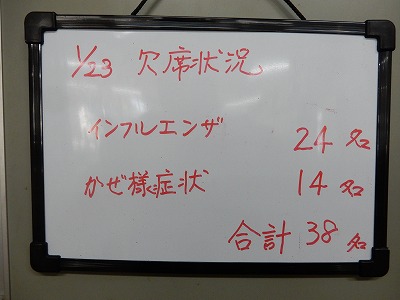 1/23 欠席状況
インフルエンザ 24名
かぜ様症状 14名
合計 38名